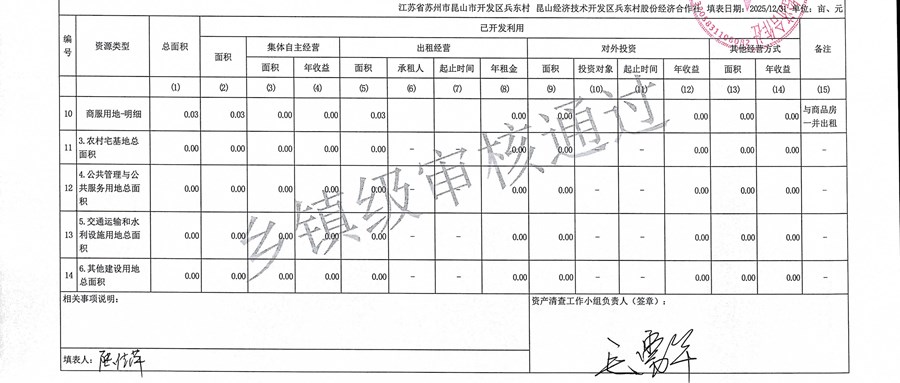 江苏省苏州市昆山市开发区兵东村 昆山经济技术开发区兵东村股份经济合作社 填表日期：2025/12/31 单位：亩、元
编号 资源类型 总面积 已开发利用 备注
面积 集体自主经营 出租经营 对外投资 其他经营方式
面积 年收益 面积 承租人 起止时间 年租金 面积 投资对象 起止时间 年收益 面积 年收益
(1) (2) (3) (4) (5) (6) (7) (8) (9) (10) (11) (12) (13) (14) (15)
10 商服用地-明细 0.03 0.03 0.00 0.00 0.03 0.00 0.00 0.00 0.00 0.00 与商品房一并出租
11 3.农村宅基地总面积 0.00 0.00 0.00 0.00 0.00 – – 0.00 0.00 – – 0.00 0.00 0.00 –
12 4.公共管理与公共服务用地总面积 0.00 0.00 0.00 0.00 0.00 – – 0.00 0.00 – – 0.00 0.00 0.00 –
13 5.交通运输和水利设施用地总面积 0.00 0.00 0.00 0.00 0.00 – – 0.00 0.00 – – 0.00 0.00 0.00 –
14 6.其他建设用地总面积 0.00 0.00 0.00 0.00 0.00 – – 0.00 0.00 – – 0.00 0.00 0.00 –
乡镇级审核通过
相关事项说明：
资产清查工作小组负责人（签章）：
填表人：